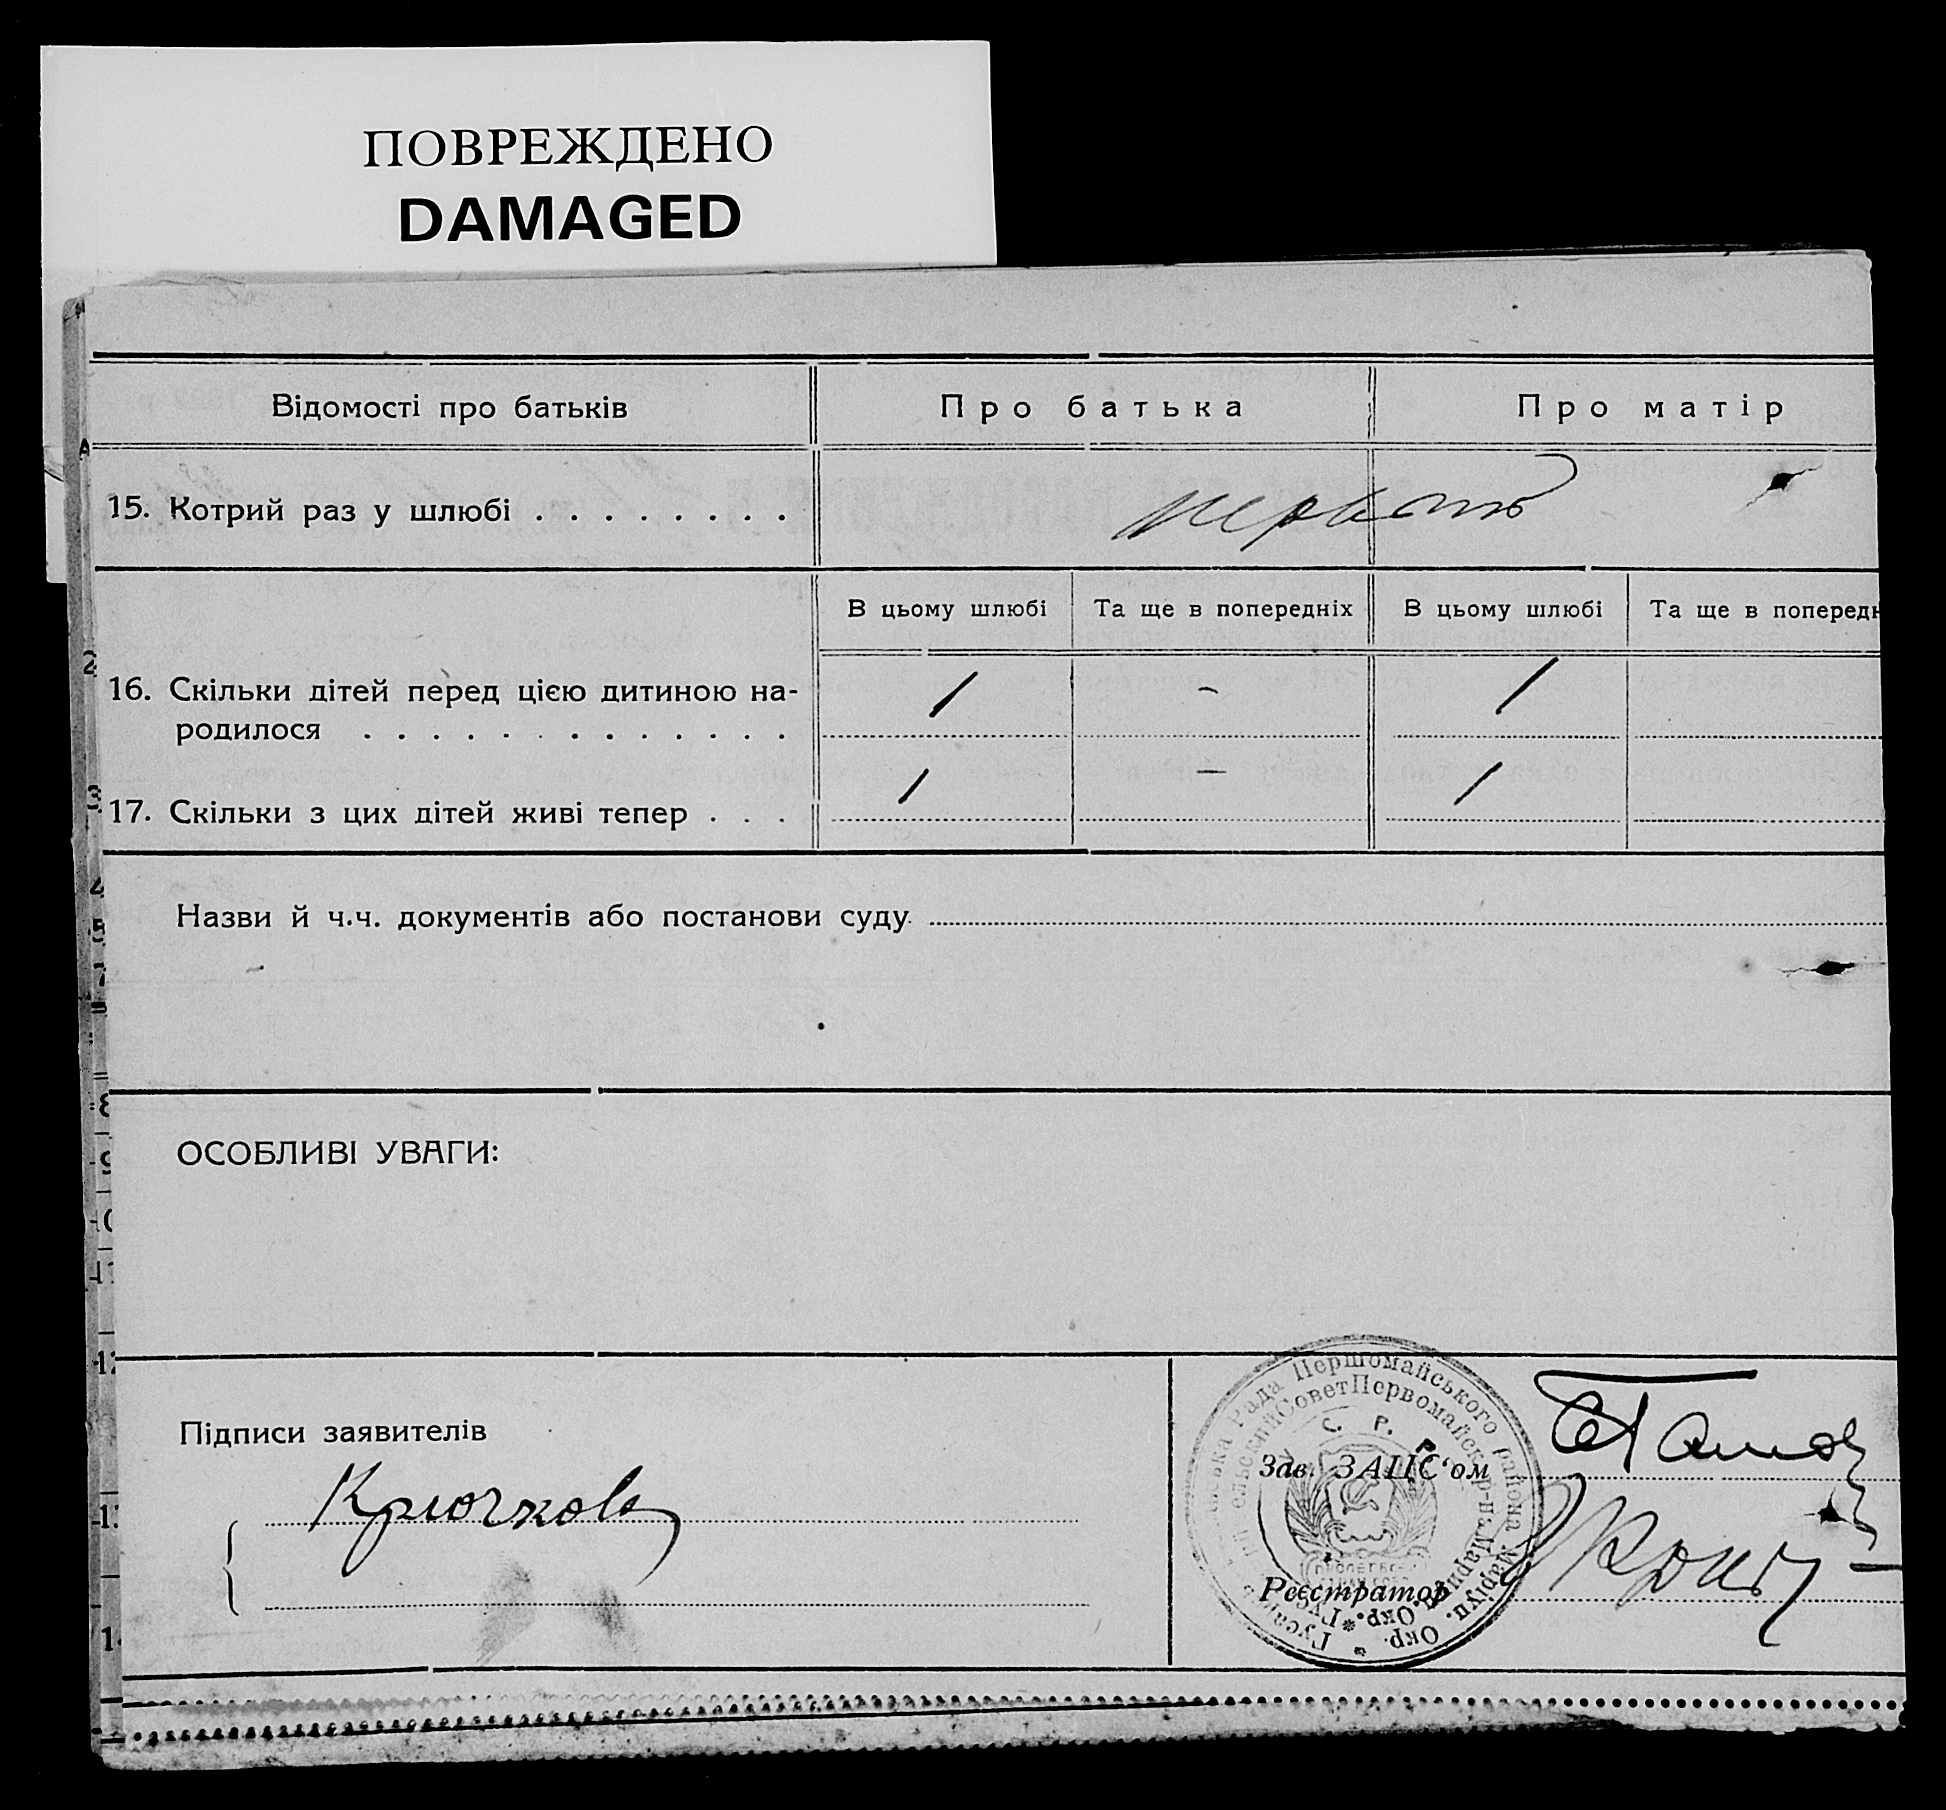 ПОВРЕЖДЕНО
DAMAGED
Відомості про батьків
Про батька
Про матір
15. Котрий раз у шлюбі . . . . . . . .
В цьому шлюбі
Та ще в попередніх
В цьому шлюбі
Та ще в поперед
16. Скільки дітей перед цією дитиною на-
родилося . . . . . . . . . . . . .
/
-
/
17. Скільки з цих дітей живі тепер . . .
/
-
/
Назви й ч.ч. документів або постанови суду.
-
ОСОБЛИВІ УВАГИ:
Підписи заявителів
Крючков
Зав. ЗАГС'ом
Реєстратор
Рада Першомайського району Маріуп. Окр.
Совет Первомайск. р-на Мариуп. Окр.
С. Р. Р.